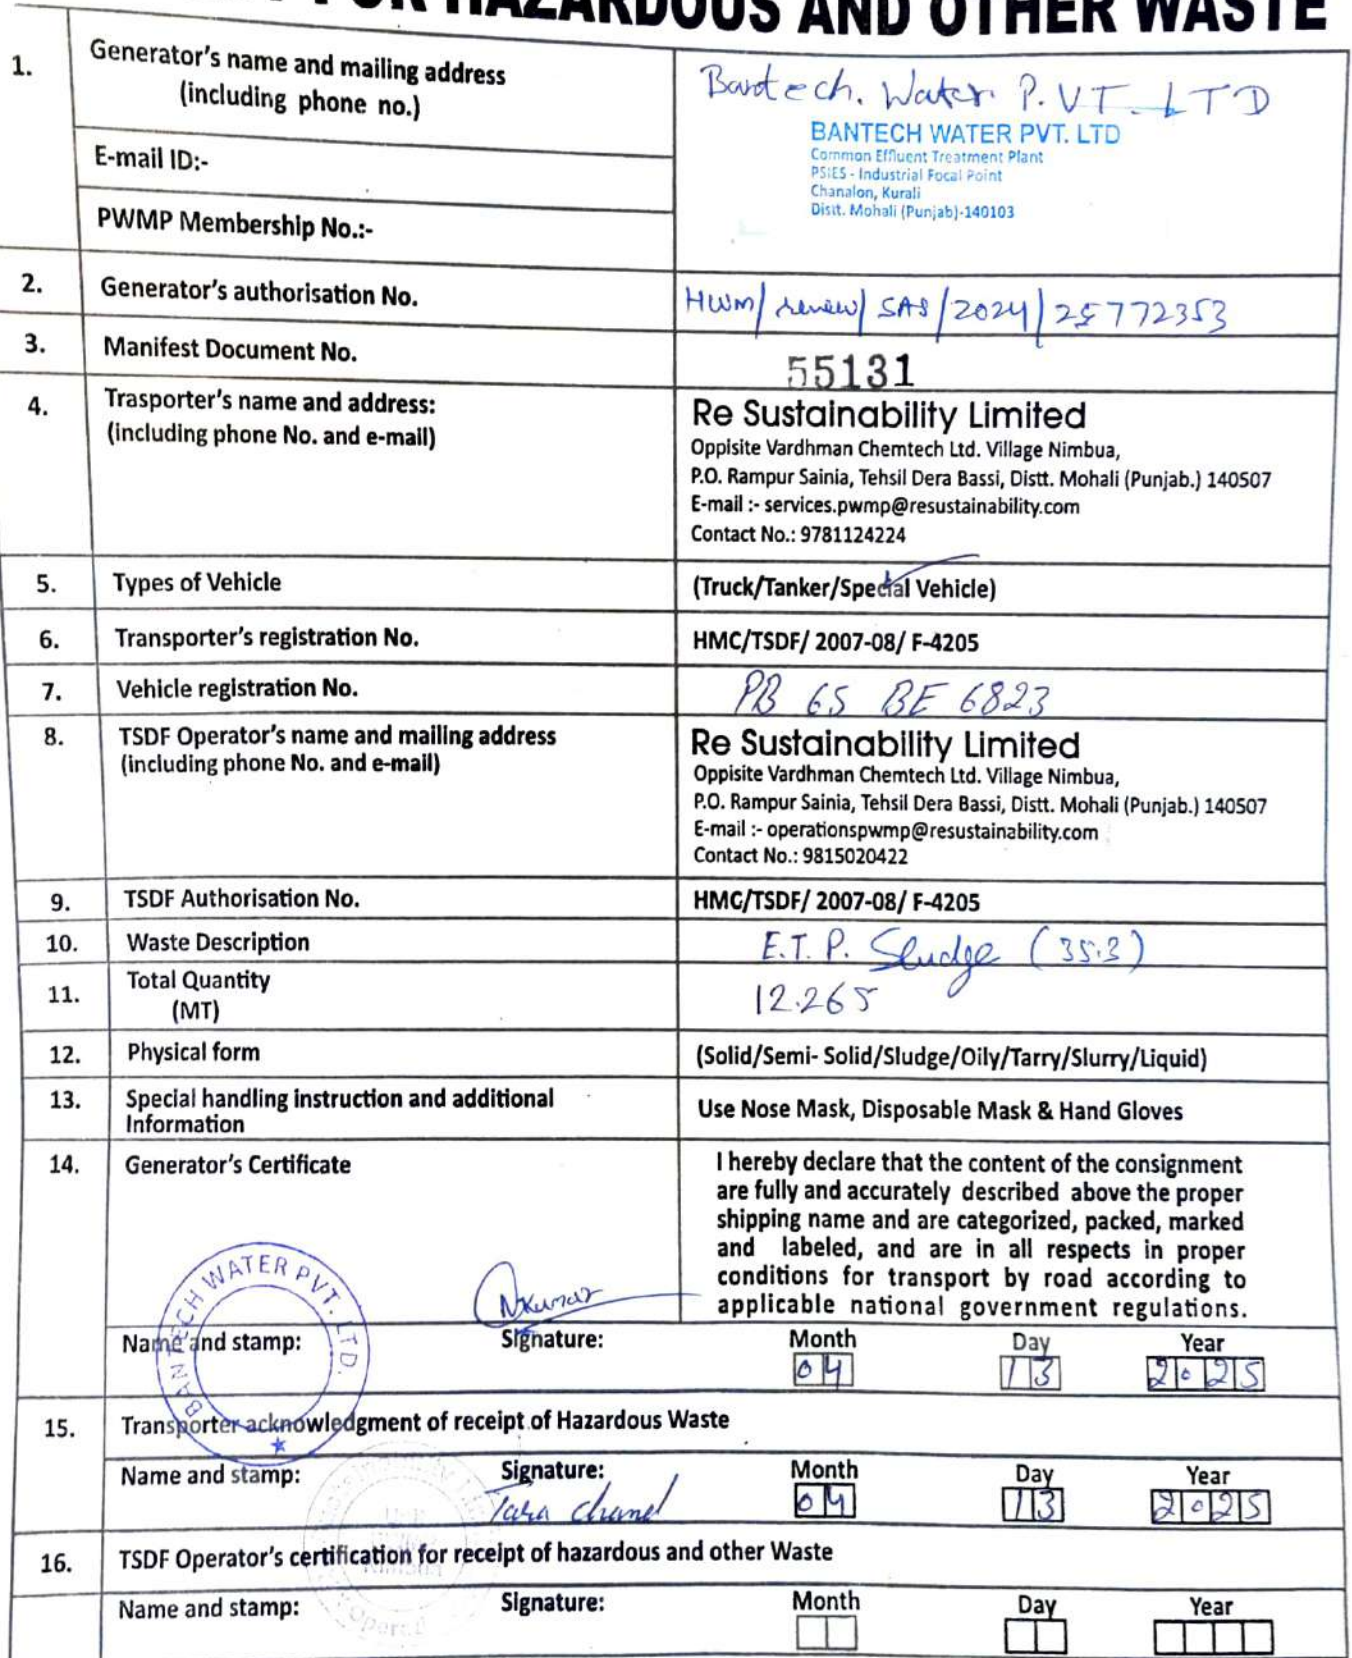 FOR HAZARDOUS AND OTHER WASTE
1. Generator's name and mailing address
(including phone no.)
Bantech. Water P.VT. LTD
BANTECH WATER PVT. LTD
Common Effluent Treatment Plant
PSIES - Industrial Focal Point
Chanalon, Kurali
Disit. Mohali (Punjab)-140103
E-mail ID:-
PWMP Membership No.:-
2. Generator's authorisation No. HWM/renew/SAS/2024/25772353
3. Manifest Document No. 55131
4. Trasporter's name and address:
(including phone No. and e-mail)
Re Sustainability Limited
Oppisite Vardhman Chemtech Ltd. Village Nimbua,
P.O. Rampur Sainia, Tehsil Dera Bassi, Distt. Mohali (Punjab.) 140507
E-mail :- services.pwmp@resustainability.com
Contact No.: 9781124224
5. Types of Vehicle (Truck/Tanker/Special Vehicle)
6. Transporter's registration No. HMC/TSDF/ 2007-08/ F-4205
7. Vehicle registration No. PB 65 BE 6823
8. TSDF Operator's name and mailing address
(including phone No. and e-mail)
Re Sustainability Limited
Oppisite Vardhman Chemtech Ltd. Village Nimbua,
P.O. Rampur Sainia, Tehsil Dera Bassi, Distt. Mohali (Punjab.) 140507
E-mail :- operationspwmp@resustainability.com
Contact No.: 9815020422
9. TSDF Authorisation No. HMC/TSDF/ 2007-08/ F-4205
10. Waste Description E.T.P. Sludge (35.3)
11. Total Quantity
(MT)
12.265
12. Physical form (Solid/Semi- Solid/Sludge/Oily/Tarry/Slurry/Liquid)
13. Special handling instruction and additional
Information
Use Nose Mask, Disposable Mask & Hand Gloves
14. Generator's Certificate
I hereby declare that the content of the consignment
are fully and accurately described above the proper
shipping name and are categorized, packed, marked
and labeled, and are in all respects in proper
conditions for transport by road according to
applicable national government regulations.
BANTECH WATER PVT. LTD.
NKumar
Name and stamp: Signature: Month Day Year
04 13 2025
15. Transporter acknowledgment of receipt of Hazardous Waste
Name and stamp: Signature: Month Day Year
Tara Chand 04 13 2025
16. TSDF Operator's certification for receipt of hazardous and other Waste
Name and stamp: Signature: Month Day Year